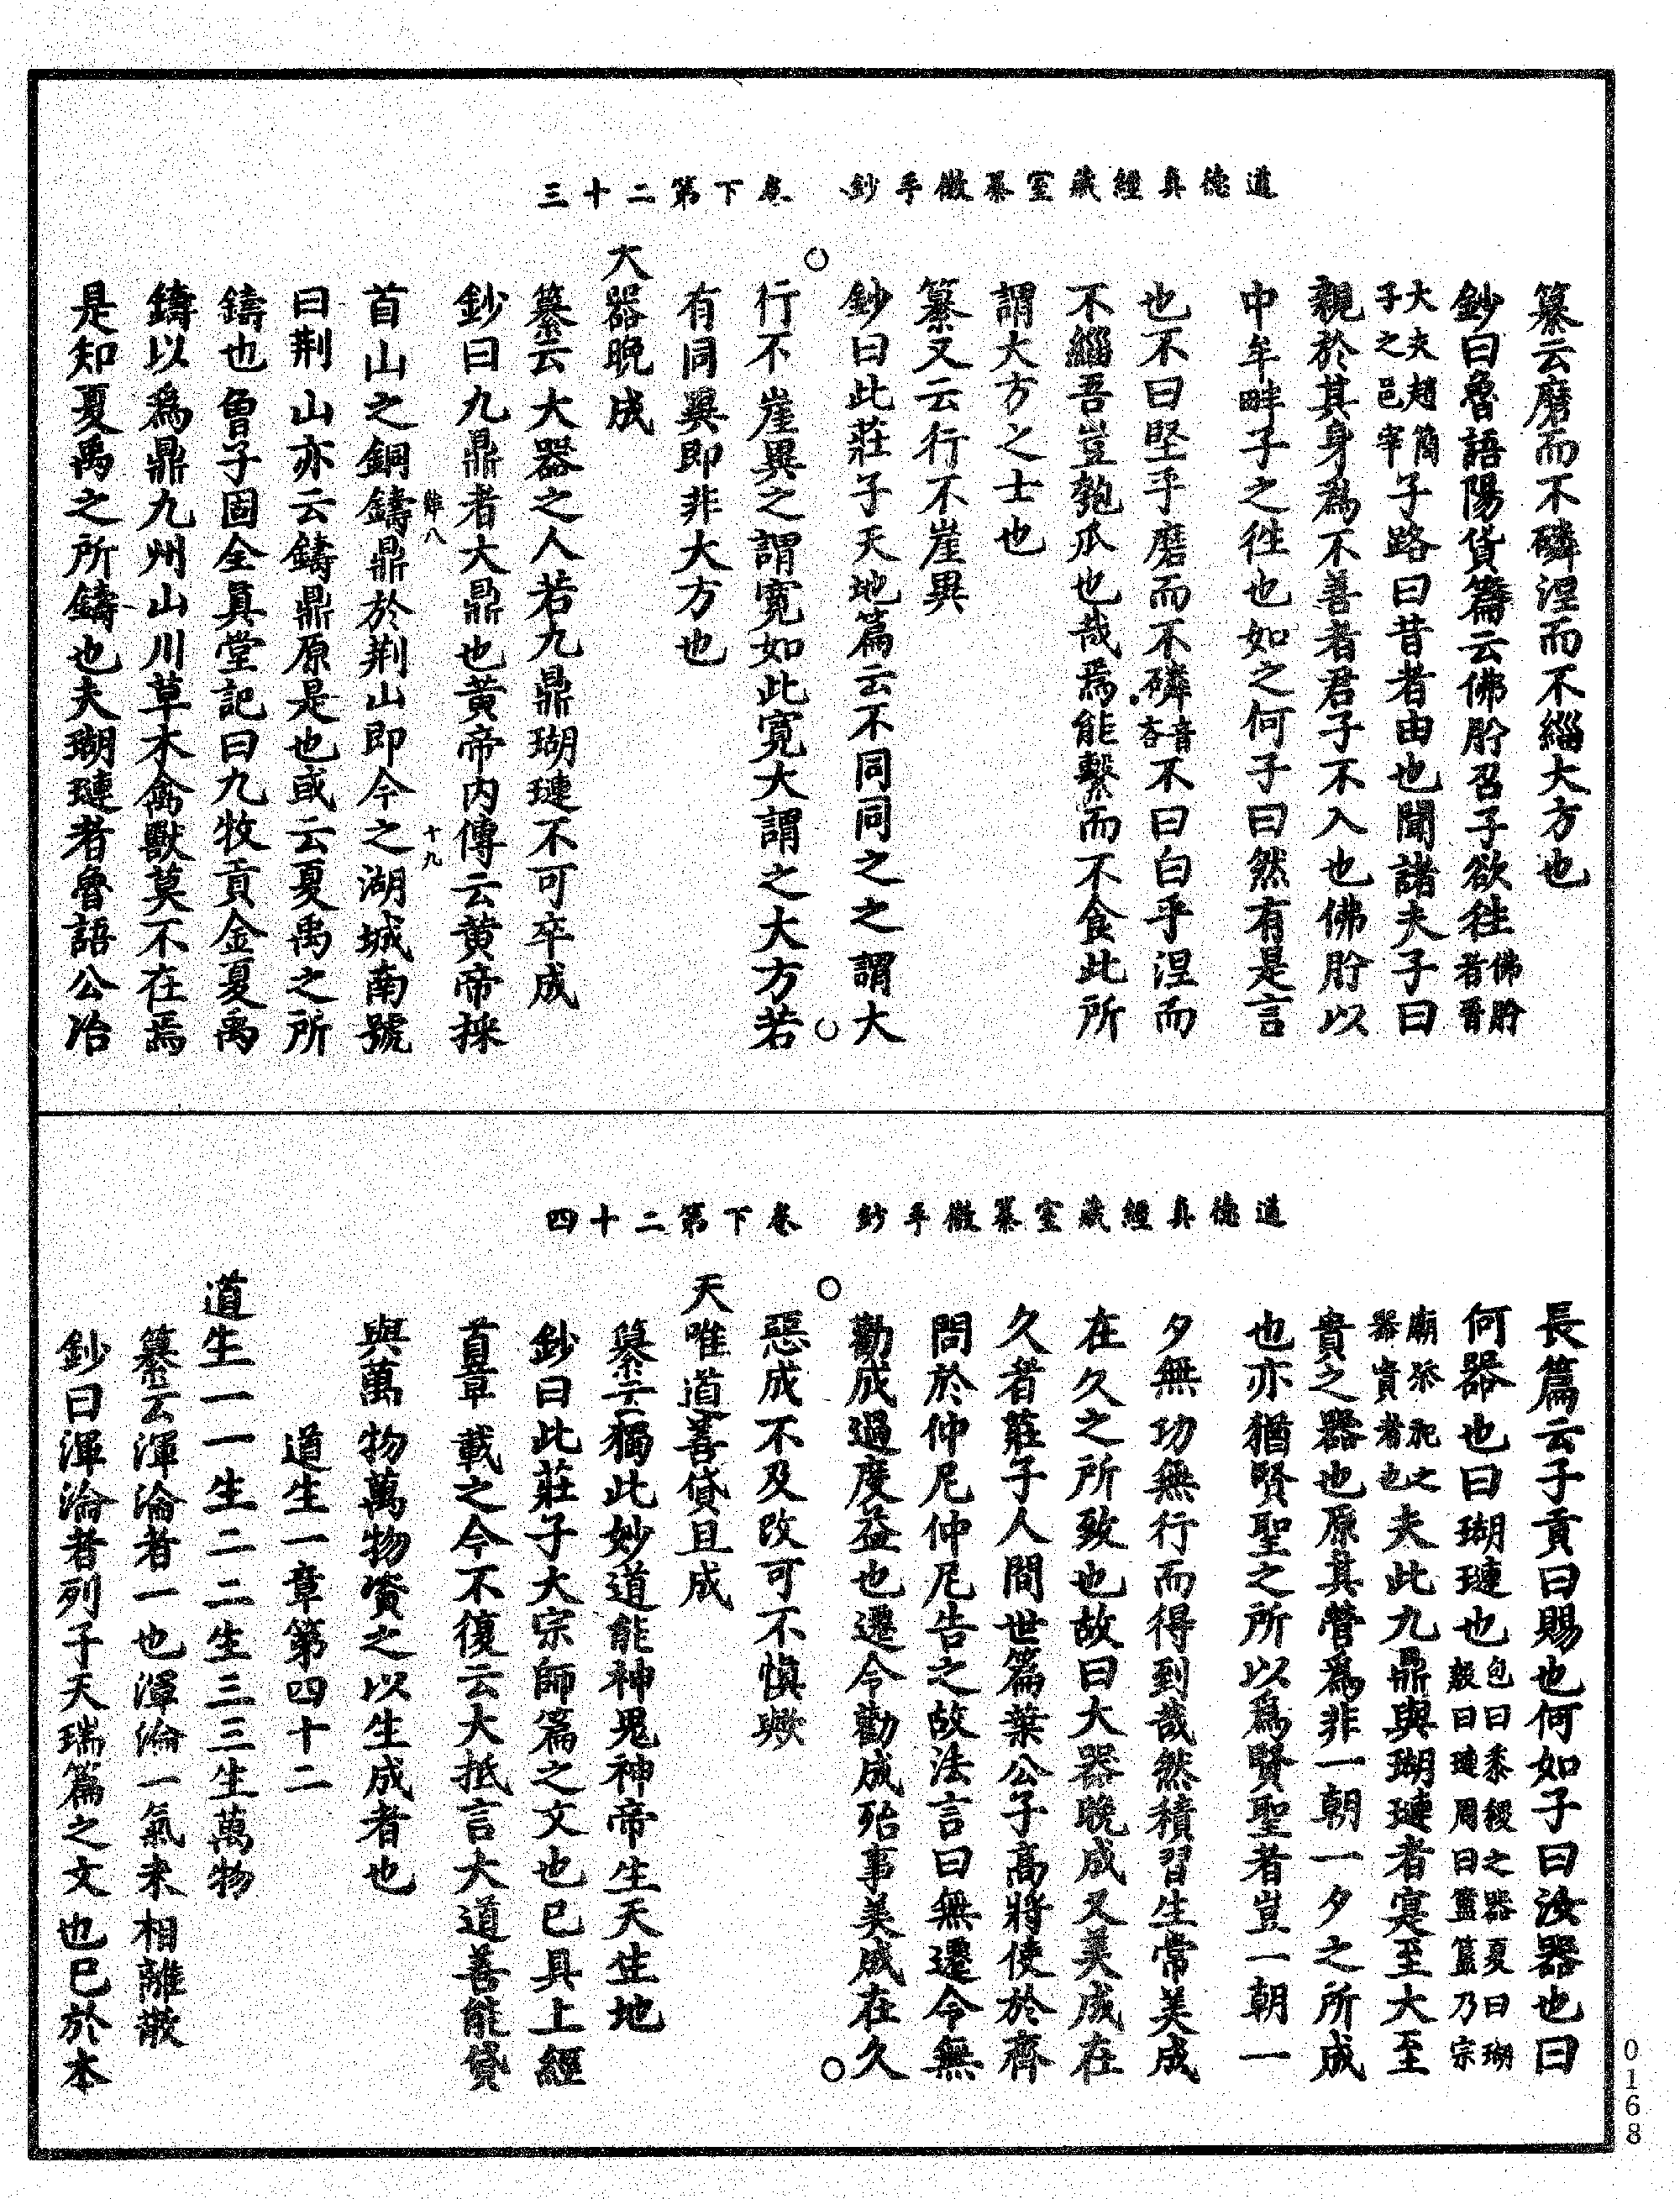 道德真經藏室纂微手鈔 卷下第二十三
纂云磨而不磷涅而不緇大方也
鈔曰魯語陽貨篇云佛肸召子欲往佛肸者晉
大夫趙簡子之邑宰子路曰昔者由也聞諸夫子曰
親於其身為不善者君子不入也佛肸以
中牟畔子之往也如之何子曰然有是言
也不曰堅乎磨而不磷音吝不曰白乎涅而
不緇吾豈匏瓜也哉焉能繫而不食此所
謂大方之士也
纂又云行不崖異
鈔曰此莊子天地篇云不同同之之謂大
行不崖異之謂寬如此寬大謂之大方若
有同異即非大方也
大器晚成
纂云大器之人若九鼎瑚璉不可卒成
鈔曰九鼎者大鼎也黃帝內傳云黃帝採
首山之銅鑄鼎於荆山即今之湖城南號
十九
曰荆山亦云鑄鼎原是也或云夏禹之所
鑄也曾子固全真堂記曰九牧貢金夏禹
鑄以為鼎九州山川草木禽獸莫不在焉
是知夏禹之所鑄也夫瑚璉者魯語公冶
道德真經藏室纂微手鈔 卷下第二十四
長篇云子貢曰賜也何如子曰汝器也曰
何器也曰瑚璉也包曰黍稷之器夏曰瑚殷曰璉周曰簠簋乃宗
廟祭祀之器貴者也夫此九鼎與瑚璉者寔至大至
貴之器也原其營為非一朝一夕之所成
也亦猶賢聖之所以為賢聖者豈一朝一
夕無功無行而得到哉然積習生常美成
在久之所致也故曰大器晚成又美成在
久者莊子人間世篇葉公子高將使於齊
問於仲尼仲尼告之故法言曰無遷令無
勸成過度益也遷令勸成殆事美成在久
惡成不及改可不慎歟
夫唯道善貸且成
纂云獨此妙道能神鬼神帝生天生地
鈔曰此莊子大宗師篇之文也已具上經
首章載之今不復云大抵言大道善能貸
與萬物萬物資之以生成者也
道生一章第四十二
道生一一生二二生三三生萬物
纂云渾淪者一也渾淪一氣未相離散
鈔曰渾淪者列子天瑞篇之文也已於本
0168